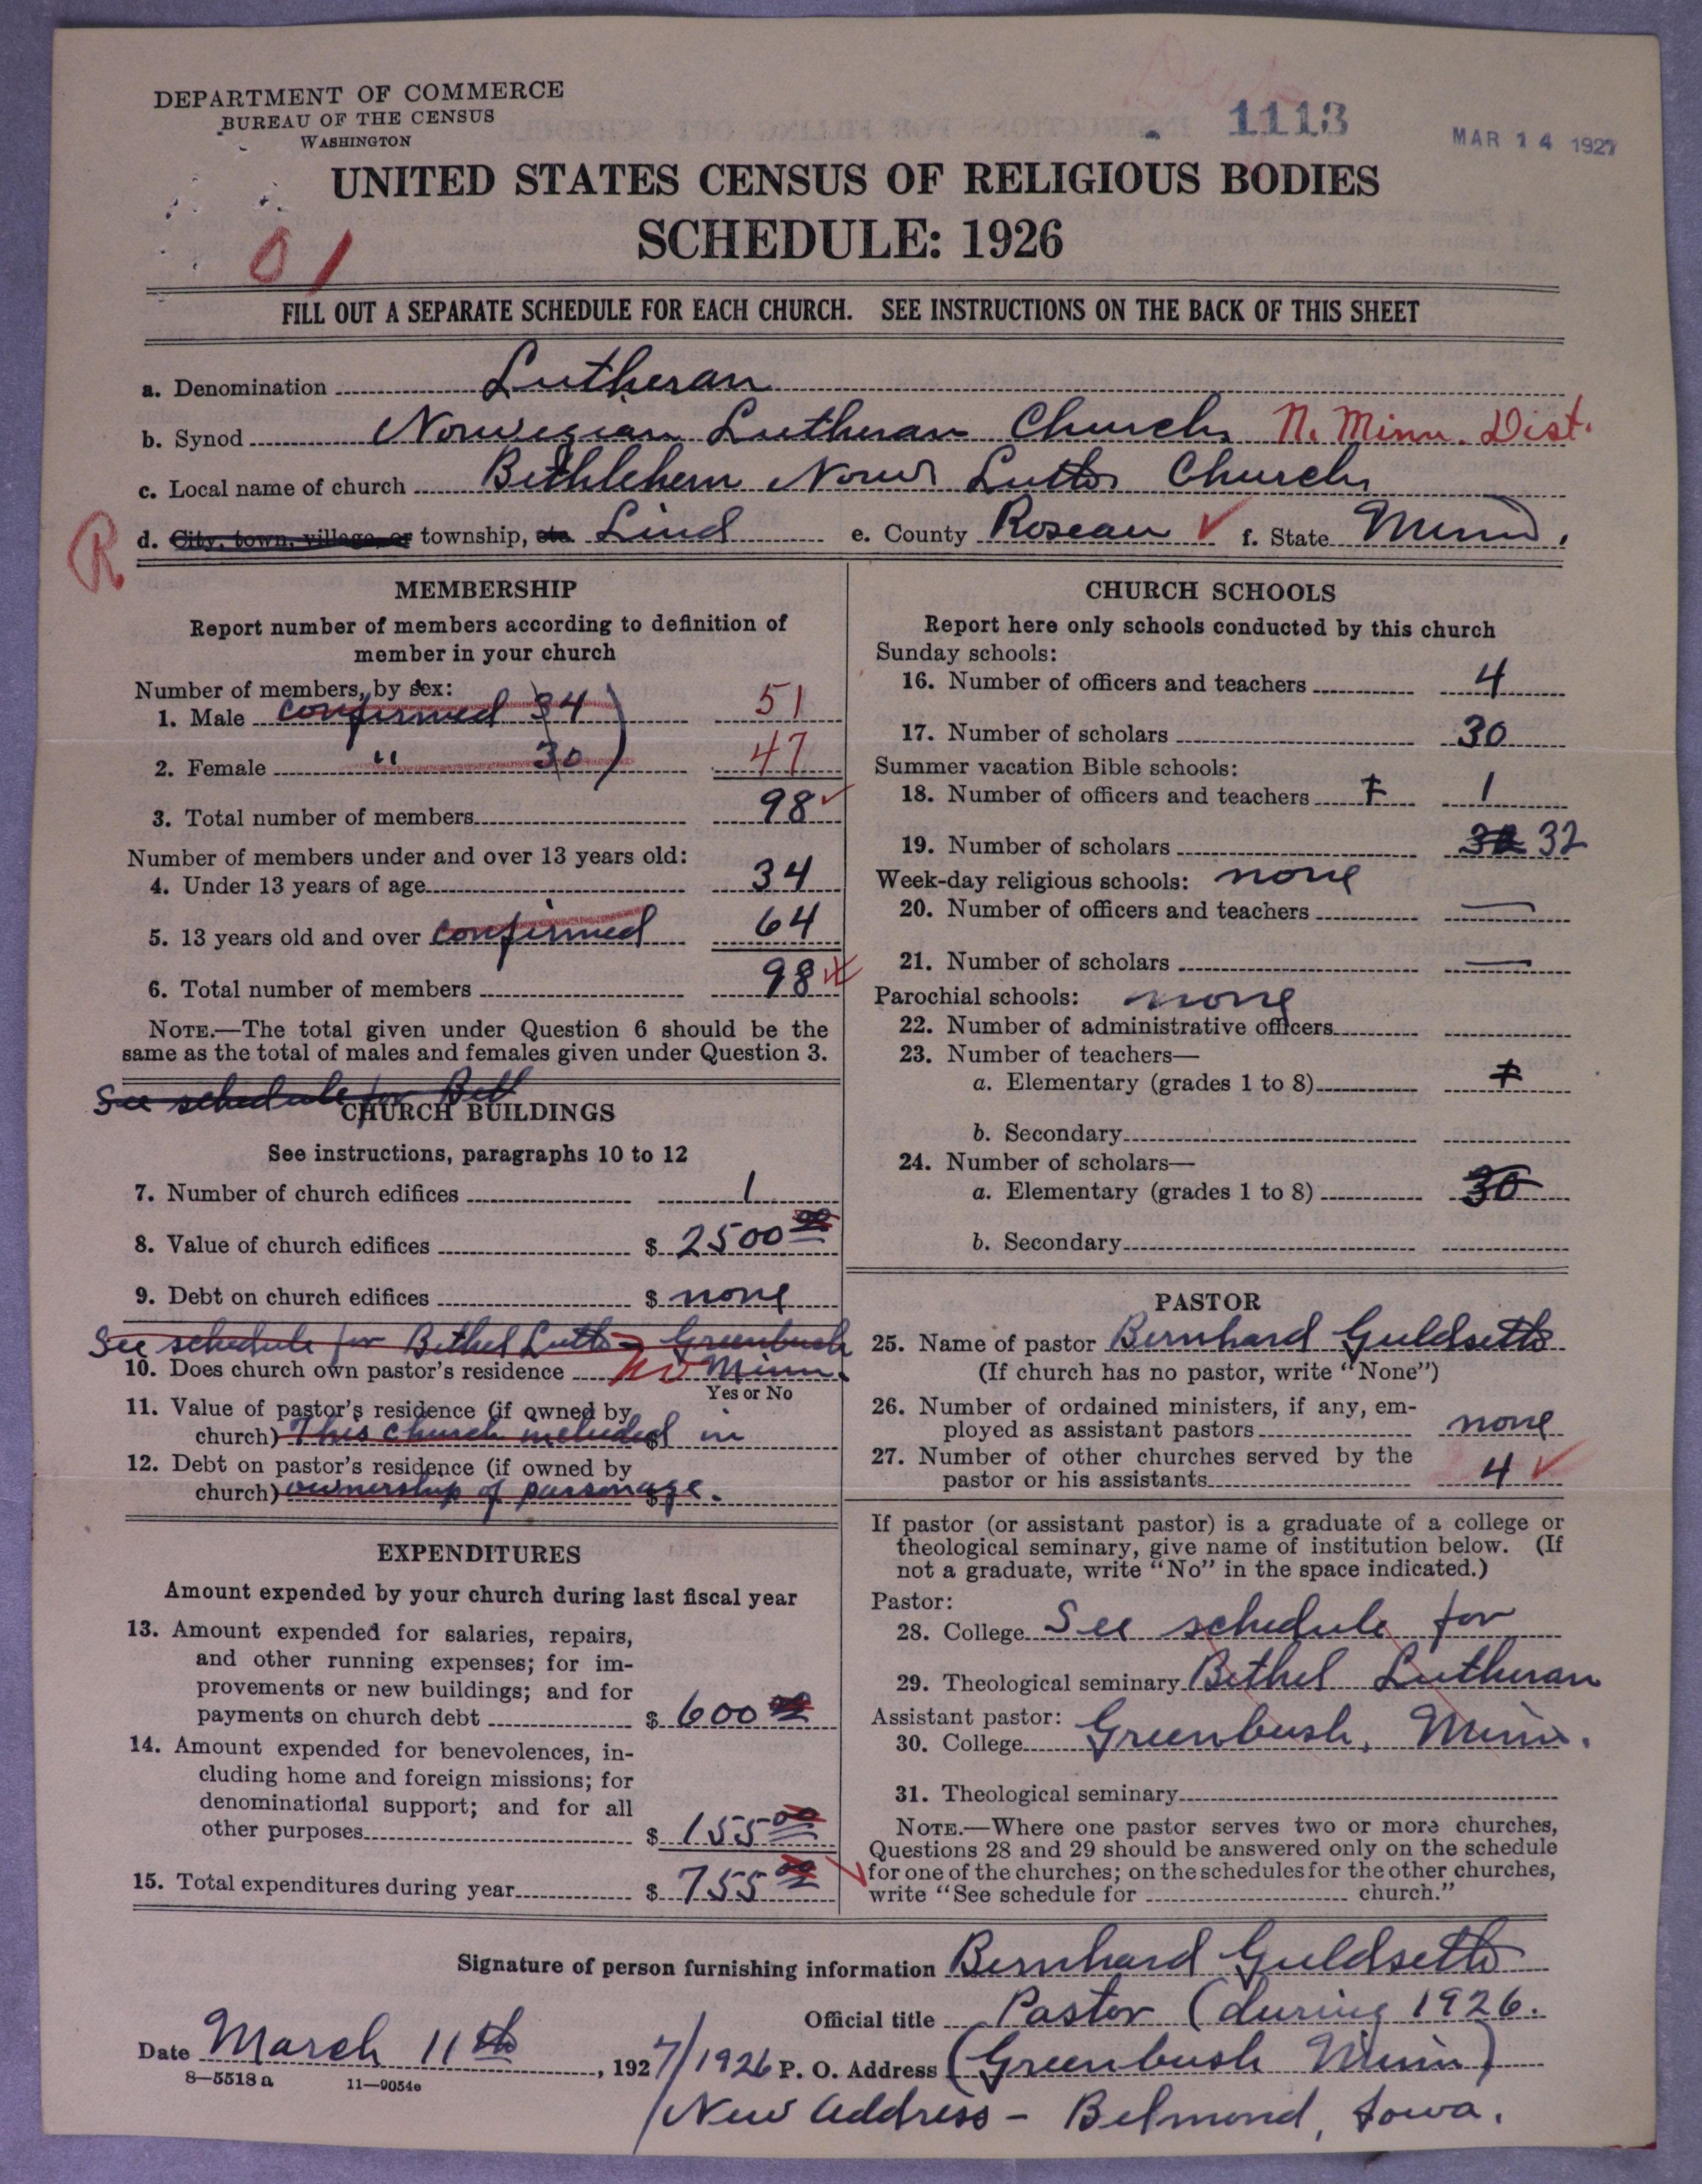 DEPARTMENT OF COMMERCE
BUREAU OF THE CENSUS
WASHINGTON
1113
MAR 14 1927
UNITED STATES CENSUS OF RELIGIOUS BODIES
SCHEDULE: 1926
01
FILL OUT A SEPARATE SCHEDULE FOR EACH CHURCH. SEE INSTRUCTIONS ON THE BACK OF THIS SHEET
a. Denomination Lutheran
b. Synod Norwegian Lutheran Church N. Minn. Dist.
c. Local name of church Bethlehem Norw Luth Church
R d. City, town, village, or township, etc. Lind e. County Roseau ✓ f. State Minn.
MEMBERSHIP
Report number of members according to definition of
member in your church
Number of members, by sex:
1. Male confirmed 34 51
2. Female " 30 47
3. Total number of members 98
Number of members under and over 13 years old:
4. Under 13 years of age 34
5. 13 years old and over confirmed 64
6. Total number of members 98
NOTE.—The total given under Question 6 should be the
same as the total of males and females given under Question 3.
See schedule for Beth
CHURCH BUILDINGS
See instructions, paragraphs 10 to 12
7. Number of church edifices 1
8. Value of church edifices $ 2500 00
9. Debt on church edifices $ none
See schedule for Bethel Luth Greenbush
10. Does church own pastor's residence no Minn.
Yes or No
11. Value of pastor's residence (if owned by
church) This church included in $
12. Debt on pastor's residence (if owned by
church) ownership of parsonage. $
EXPENDITURES
Amount expended by your church during last fiscal year
13. Amount expended for salaries, repairs,
and other running expenses; for im-
provements or new buildings; and for
payments on church debt $ 600 00
14. Amount expended for benevolences, in-
cluding home and foreign missions; for
denominational support; and for all
other purposes $ 155 00
15. Total expenditures during year $ 755 00
CHURCH SCHOOLS
Report here only schools conducted by this church
Sunday schools:
16. Number of officers and teachers 4
17. Number of scholars 30
Summer vacation Bible schools:
18. Number of officers and teachers 1
19. Number of scholars 32
Week-day religious schools: none
20. Number of officers and teachers —
21. Number of scholars —
Parochial schools: none
22. Number of administrative officers
23. Number of teachers—
a. Elementary (grades 1 to 8)
b. Secondary
24. Number of scholars—
a. Elementary (grades 1 to 8) 30
b. Secondary
PASTOR
25. Name of pastor Bernhard Guldseth
(If church has no pastor, write "None")
26. Number of ordained ministers, if any, em-
ployed as assistant pastors none
27. Number of other churches served by the
pastor or his assistants 4 ✓
If pastor (or assistant pastor) is a graduate of a college or
theological seminary, give name of institution below. (If
not a graduate, write "No" in the space indicated.)
Pastor:
28. College See schedule for
29. Theological seminary Bethel Lutheran
Assistant pastor:
30. College Greenbush, Minn.
31. Theological seminary
NOTE.—Where one pastor serves two or more churches,
Questions 28 and 29 should be answered only on the schedule
for one of the churches; on the schedules for the other churches,
write "See schedule for church."
Signature of person furnishing information Bernhard Guldseth
Official title Pastor (during 1926.
Date March 11th, 1927/1926 P. O. Address (Greenbush Minn)
8—5518a 11—9054e
New Address – Belmond, Iowa.